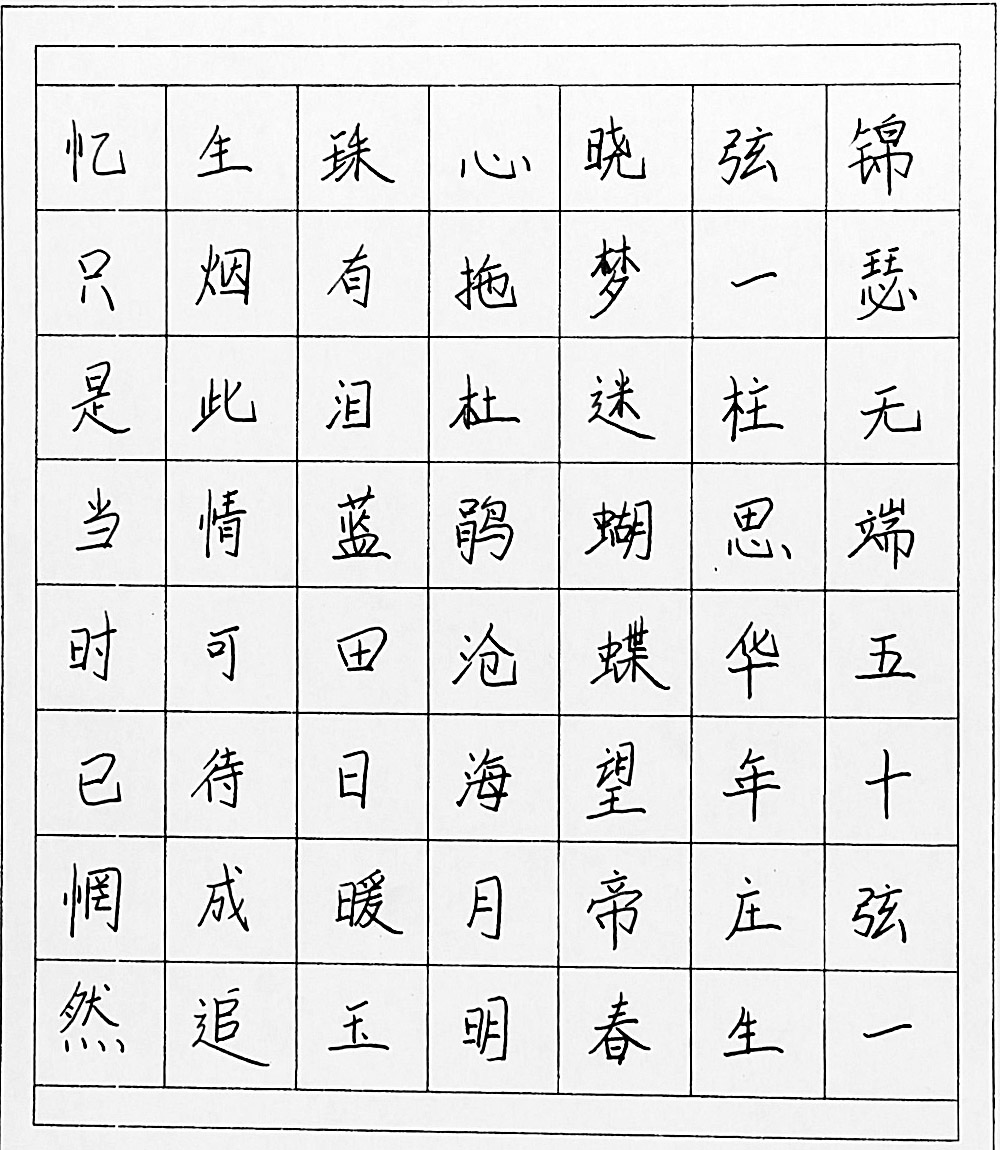 锦瑟无端五十弦一
弦一柱思华年庄生
晓梦迷蝴蝶望帝春
心拖杜鹃沧海月明
珠有泪蓝田日暖玉
生烟此情可待成追
忆只是当时已惘然